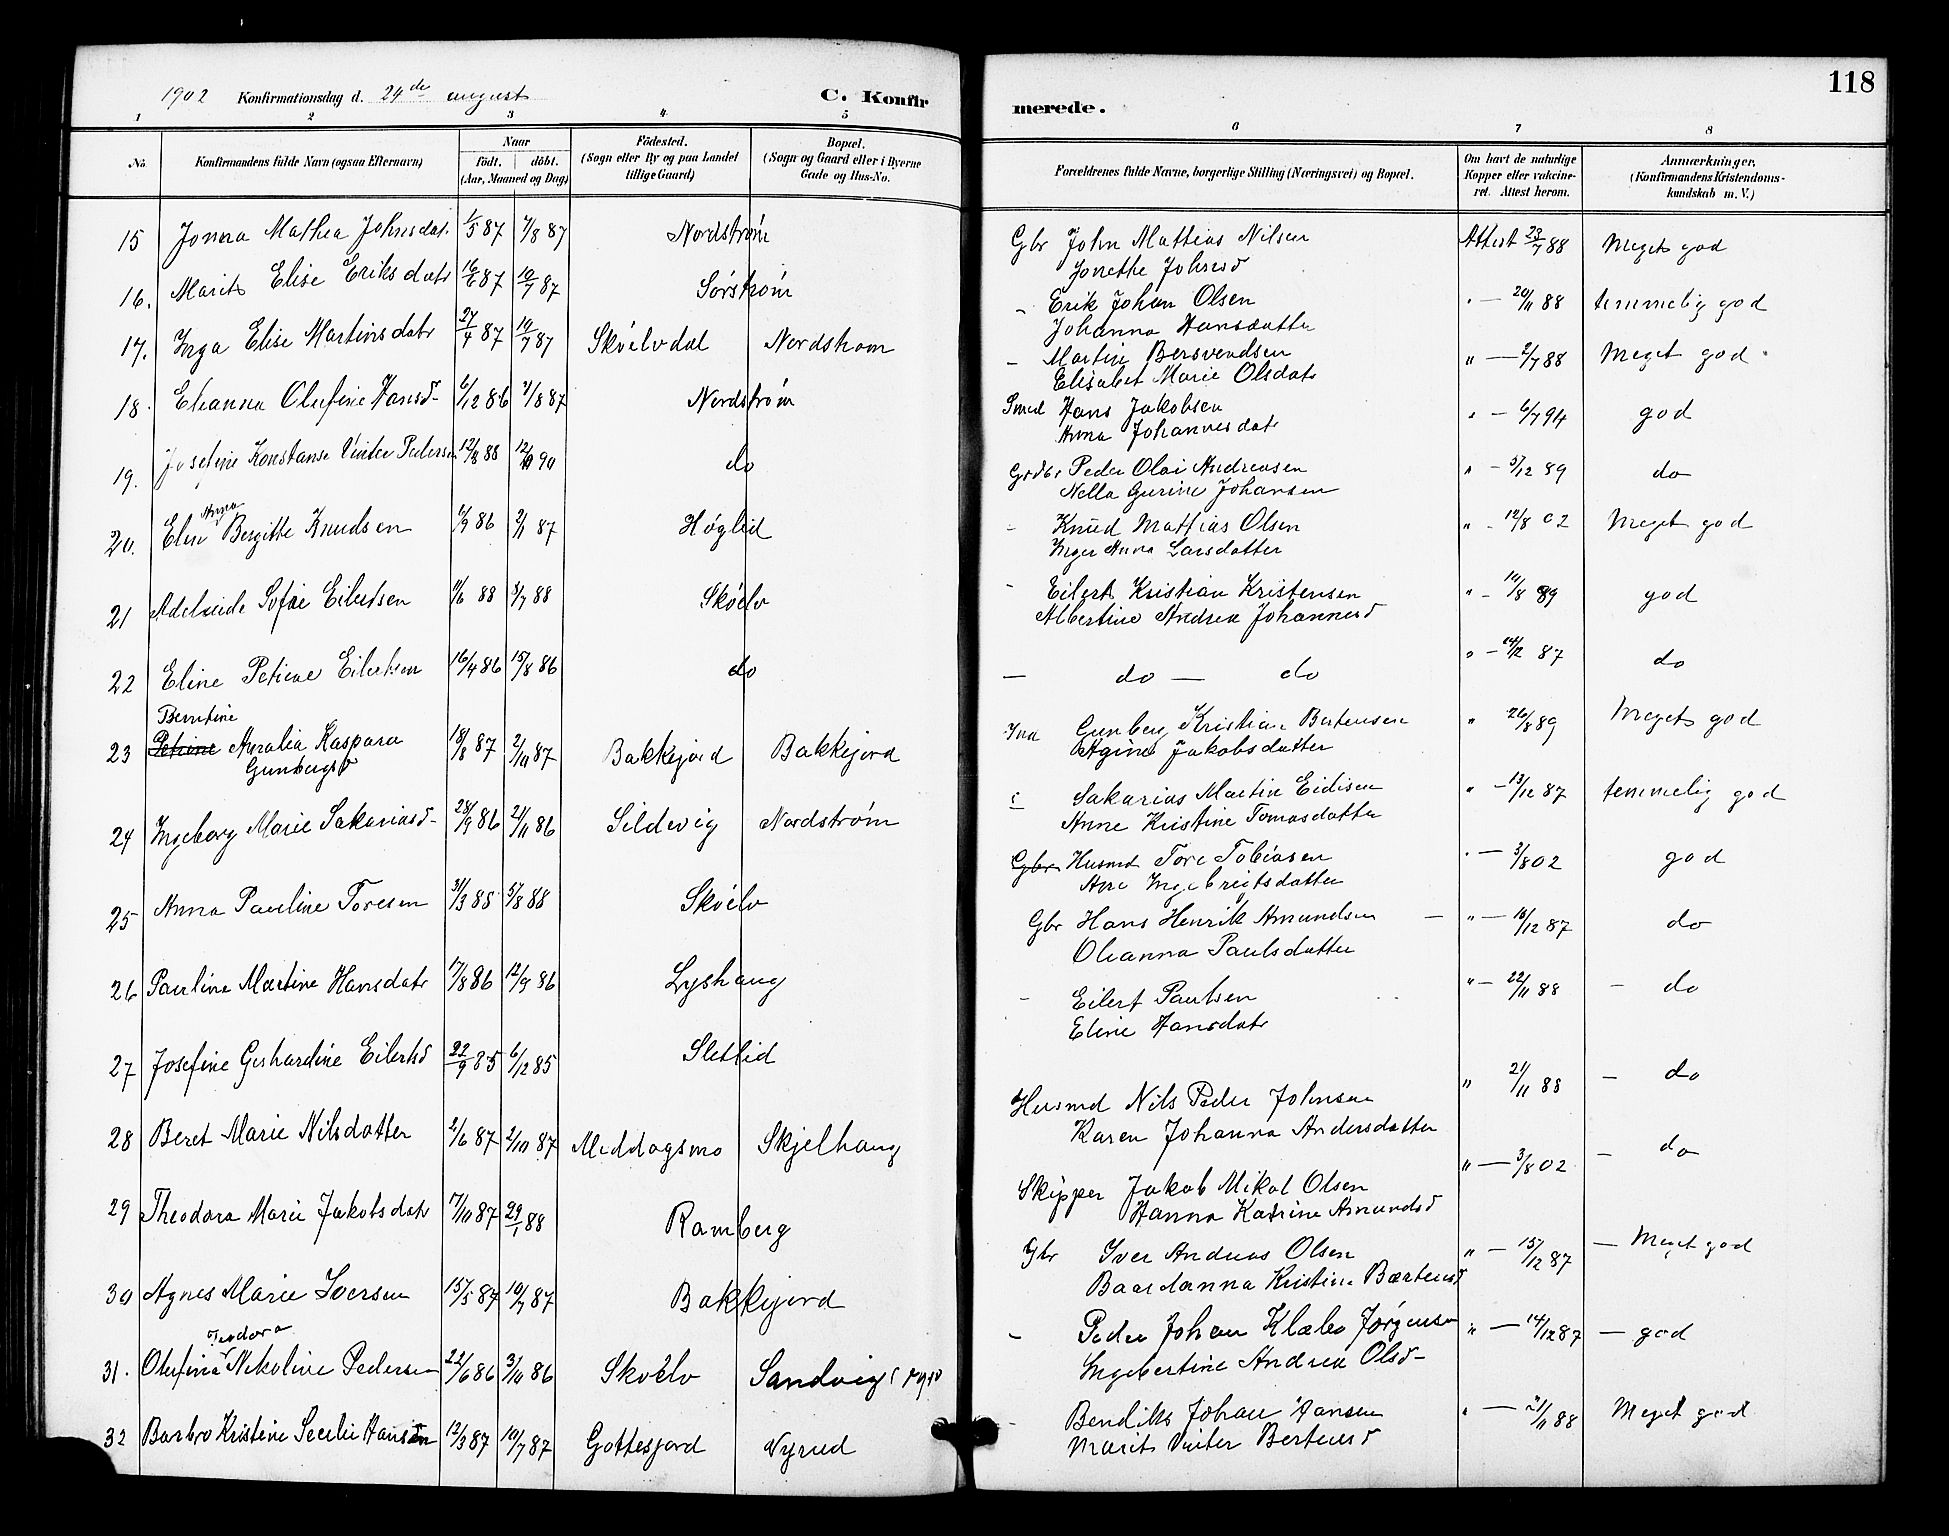 1902 Konfirmationsdag d. 24de august C. Konfir
1 2 3 4 5
No. Konfirmandens fulde Navn (ogsaa Efternavn) Naar Födested. Bopæl.
födt. döbt. (Sogn eller By og paa Landet (Sogn og Gaard eller i Byerne
(Aar, Maaned og Dag) tillige Gaard) Gade og Hus-No.
15 Jonna Mathea Johnsdat. 1/5 87 7/8 87 Nordstrøm
16. Marit Elise Eriksdatr 16/6 87 10/7 87 Sørstrøm
17. Inga Elise Martinsdatr 27/4 87 10/7 87 Skøelvdal Nordstrøm
18. Elianna Olufine Hansd- 6/12 86 7/8 87 Nordstrøm
19. Josefine Konstanse Vinter Pedersen 12/8 88 12/10 90 do
Anna
20. Elen Bergitte Knudsen 6/9 86 2/1 87 Høglid
21 Adelaide Sofie Eilertsen 11/6 88 3/7 88 Skøelv
22 Eline Petrine Eilertsen 16/4 86 15/8 86 do
Berntine
23 Petrine Auralia Kaspara 18/8 87 2/10 87 Bakkejord Bakkejord
Gunbergsd
24 Ingeborg Marie Sakariasd- 28/9 86 21/11 86 Sildevig Nordstrøm
25 Anna Pauline Toresen 31/3 88 5/8 88 Skøelv
26 Pauline Martine Hansdatr 17/8 86 12/9 86 Lyshaug
27 Josefine Gerhardine Eilertsd 22/9 85 6/12 85 Sletlid
28 Beret Marie Nilsdatter 2/6 87 2/10 87 Middagsmo Skjelhaug
29 Theodora Marie Jakobsdatr 7/10 87 29/1 88 Ramberg
30 Agnes Marie Iversen 15/5 87 10/7 87 Bakkejord
Teodora
31. Olufine Nikoline Pedersen 22/6 86 3/10 86 Skøelv Sandvig
32 Barbro Kristine Secelie Hansen 12/3 87 10/7 87 Gottesjord Nyrud
118
merede.
6 7 8
Forældrenes fulde Navne, borgerlige Stilling (Næringsvei) og Bopæl. Om havt de naturlige Anmærkninger,
Kopper eller vakcine- (Konfirmandens Kristendoms-
ret. Attest herom. kundskab m. V.)
Gbr John Mattias Nilsen Attest 23/7 88 Meget god
Jonethe Johnsd
- Erik Johan Olsen - 20/11 88 temmelig god
Johanna Hansdatter
- Martin Bersvendsen " - 2/7 88 Meget god
Elisabet Marie Olsdatr
Smed Hans Jakobsen - 6/7 94 god
Anna Johannesdatr
Grdbr Peder Olai Andreasen " - 5/12 89 do
Nella Gurine Johansen
- Knud Mattias Olsen " - 12/8 02 Meget god
Inger Anna Larsdatter
- Eilert Kristian Kristensen " - 10/8 89 god
Albertine Andrea Johannesd
- do - do " - 14/12 87 do
Ind Gunberg Kristian Bertensen " 26/8 89 Meget god
Agine Jakobsdatter
Sakarias Martin Eidisen " - 13/12 87 temmelig god
Anne Kristine Tomasdatter
Gbr Husmd Tore Tobiasen - 3/8 02 god
Ane Ingebrigtsdatter
Gbr Hans Henrik Amundsen - " - 16/12 87 do
Oleanna Paulsdatter
- Eilert Paulsen " - 22/11 88 - do
Eline Hansdatr
Husmd Nils Peder Johnsen " 21/11 88 - do
Karen Johanna Andersdatter
Skipper Jakob Mikal Olsen " - 3/8 02 - do
Hanna Katrine Amundsd
Gbr Iver Andreas Olsen " - 15/12 87 - Meget god
Baardanna Kristine Bertensd
- Peder Johan Klæbo Jørgensen " - 14/12 87 - god
Ingebertine Andrea Olsd-
- Bendiks Johan Hansen " - 21/11 88 Meget god
Marit Vinter Bertensd